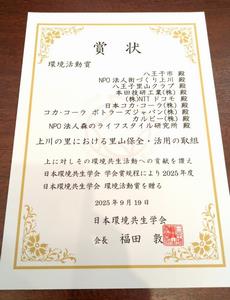 賞状
環境活動賞
八王子市 殿
NPO法人街づくり上川 殿
八王子里山クラブ 殿
本田技研工業(株) 殿
(株)NTTドコモ 殿
日本コカ・コーラ(株) 殿
コカ・コーラ ボトラーズジャパン(株) 殿
カルビー(株) 殿
NPO法人森のライフスタイル研究所 殿
上川の里における里山保全・活用の取組
上に対しその環境共生活動への貢献を讃え
日本環境共生学会 学会賞規程により2025年度
日本環境共生学会 環境活動賞を贈る
2025年9月19日
日本環境共生学会
会長 福田 敦